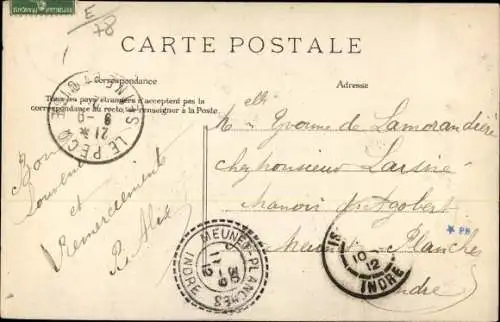 E
78
CARTE POSTALE
Correspondance
Adresse
Tous les pays étrangers n'acceptent pas la
correspondance au recto, se renseigner à la Poste.
LE PECQ
SEINE
21
9-9
Bon
Souvenir
et
Remerciements
Melle Yvonne de Lamorandière
chez monsieur
Manoir d'Agobert
Meunet-Planches
Indre
MEUNET-PLANCHES
INDRE
10
12
INDRE
* PH